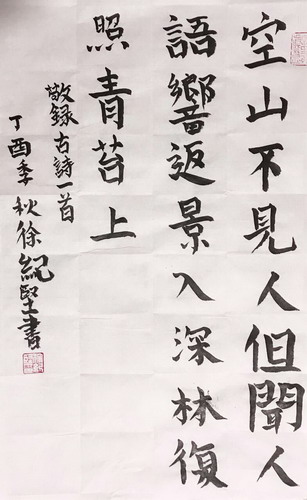 空山不見人但聞人
語響返景入深林復
照青苔上
敬録古詩一首
丁酉季秋徐紀堅書